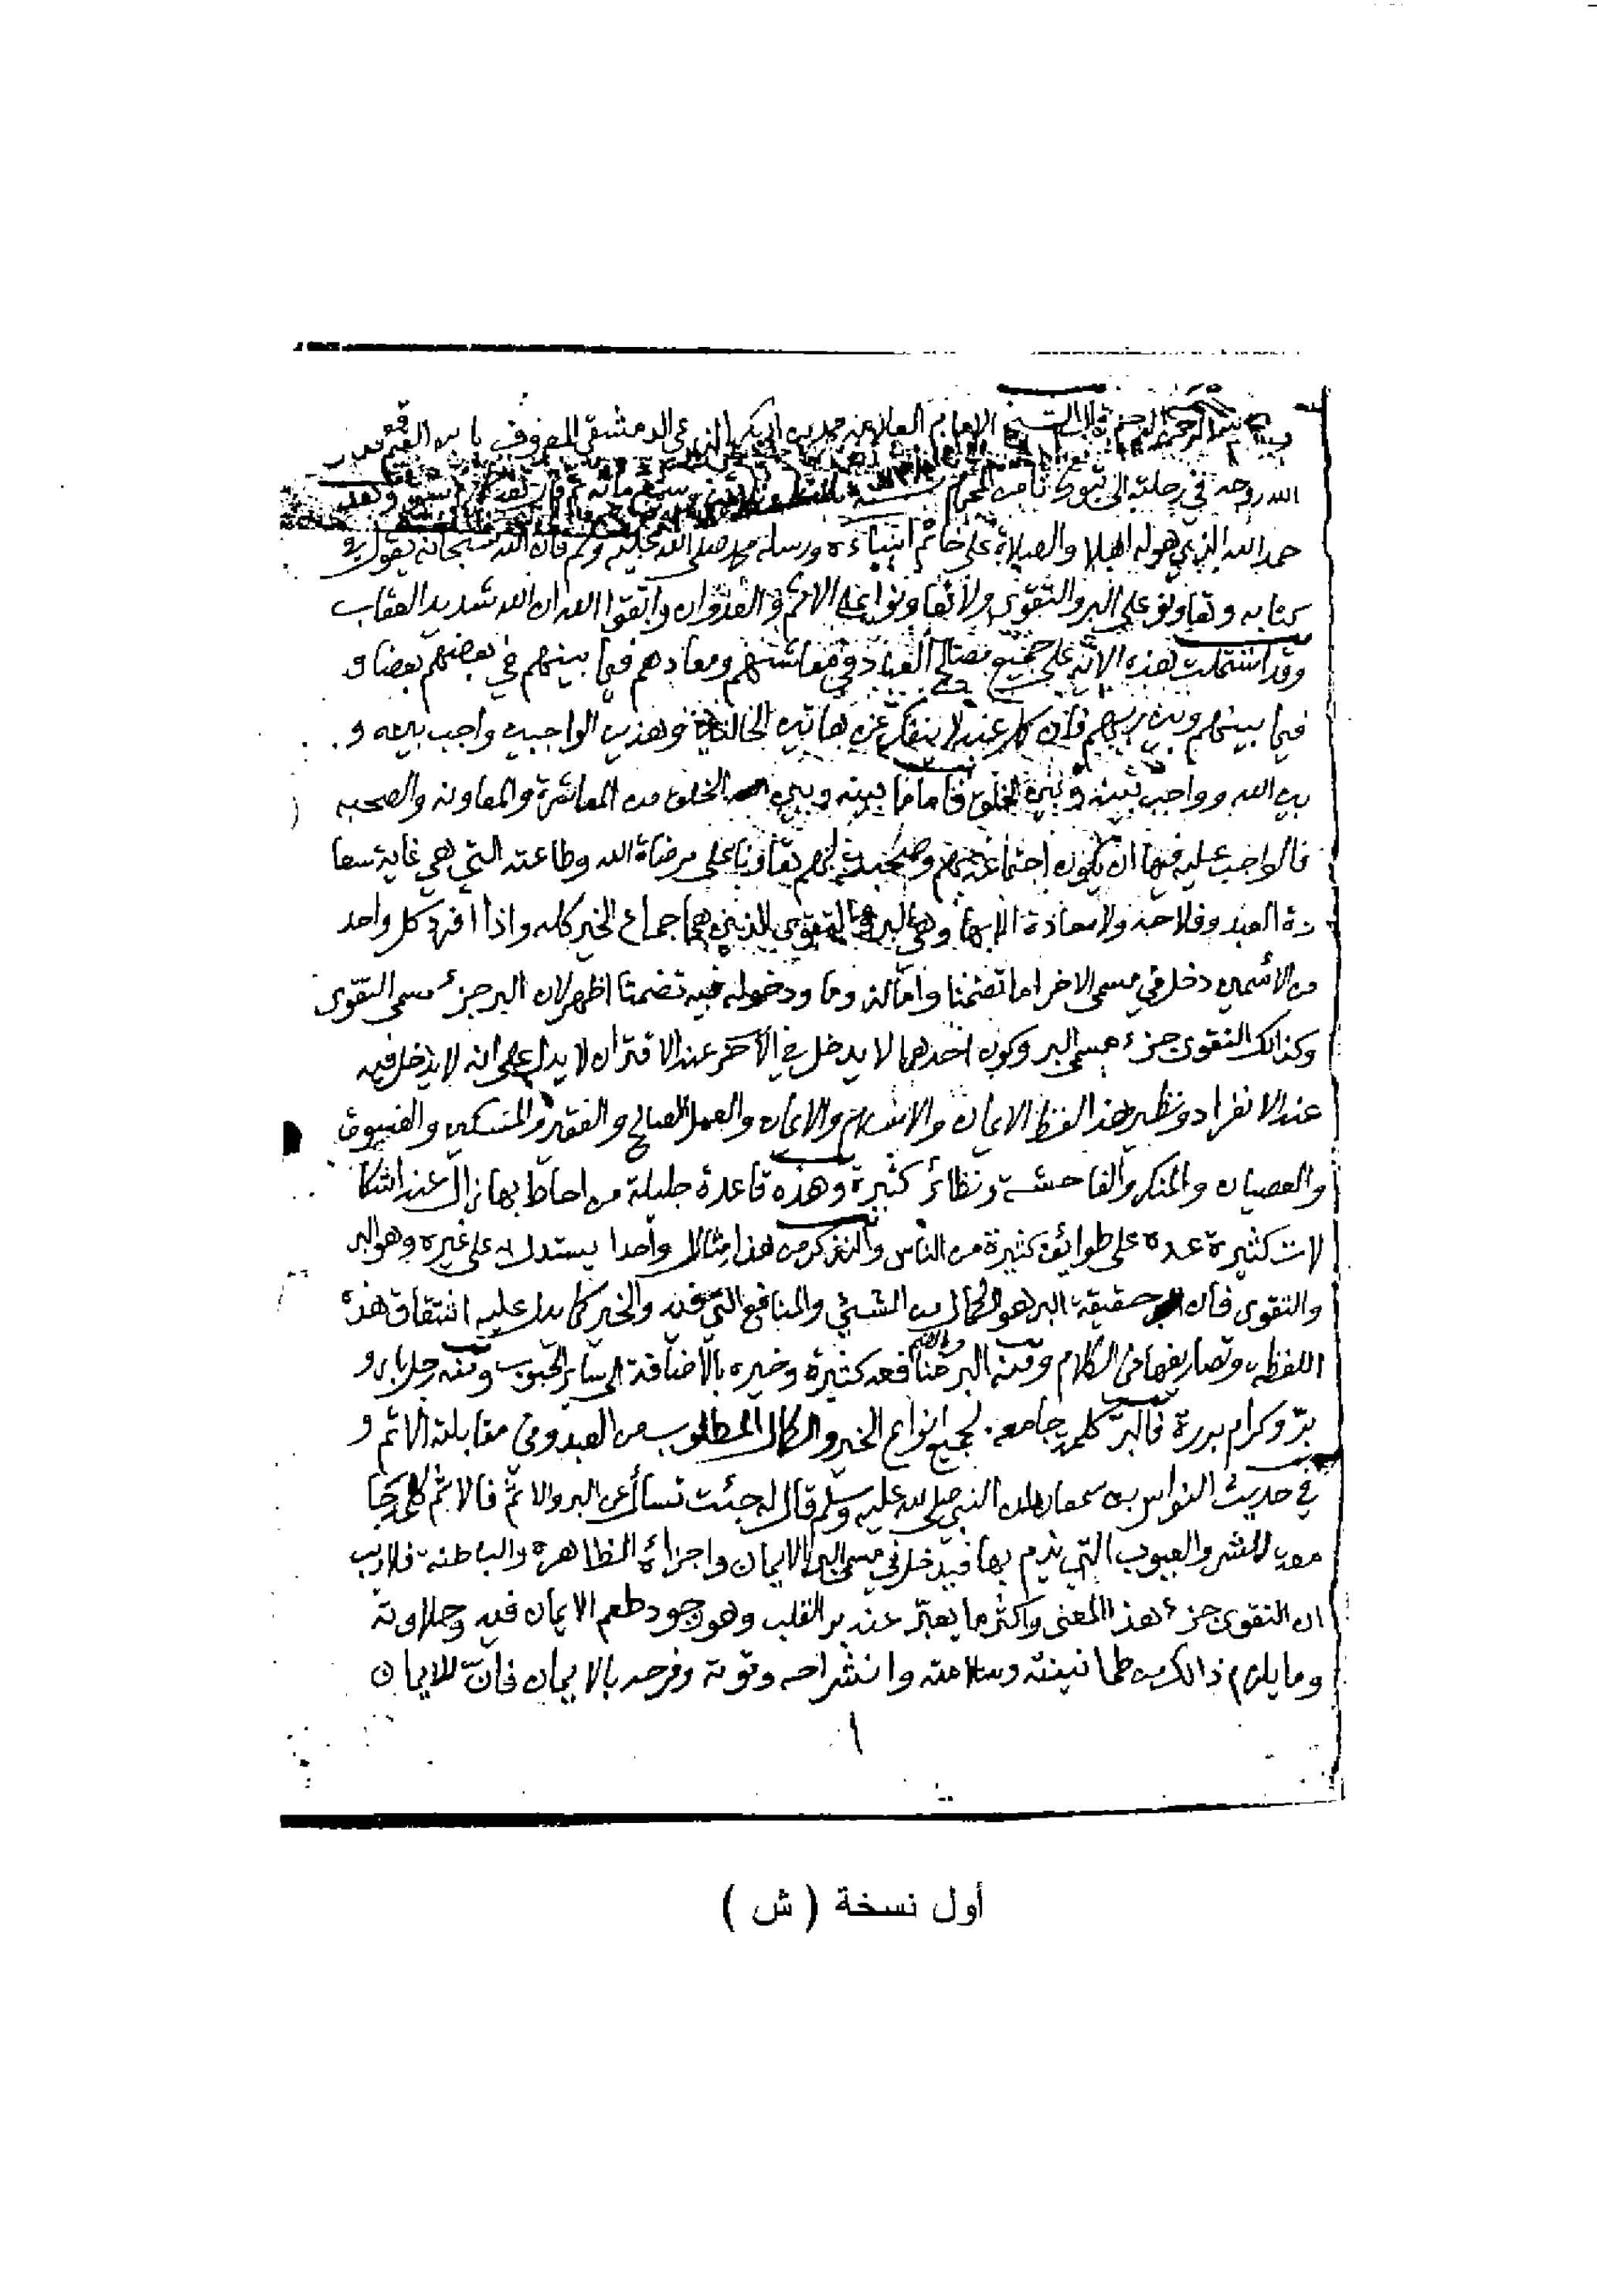 بسم الله الرحمن الرحيم قال الشيخ الامام العلامة محمد بن ابي بكر الزرعي الدمشقي المعروف بابن القيم قدس
الله روحه في رحلته الى تبوك ثامن المحرم سنة وثلاثين وسبع مائة
حمد الله الذي هو له اهلا والصلاة على خاتم انبياءه ورسله محمد صلى الله عليه وسلم فان الله سبحانه يقول في
كتابه وتعاونو على البر والتقوى ولا تعاونوا على الاثم والعدوان واتقوا الله ان الله شديد العقاب
وقد اشتملت هذه الاية على جميع مصالح العباد في معاشهم ومعادهم فيما بينهم في بعضهم بعضا و
فيما بينهم وبين ربهم فان كل عبد لا ينفك عن هاتين الحالتين وهذين الواجبين واجب بينه و
بين الله وواجب بينه وبين الخلق فاما ما بينه وبين الخلق من المعاشرة والمعاونه والصحبه
فالواجب عليه فيها ان يكون اجتماعه بهم وصحبته لهم تعاونا على مرضاة الله وطاعته التي هي غاية سعا
دة العبد وفلاحه ولا سعادة الا بها وهي البر والتقوى الذين هما جماع الخير كله واذا افرد كل واحد
من الاسمين دخل في مسمى الاخر اما تضمنا واما لزوما ودخوله فيه تضمنا اظهر لان البر جزء مسمى التقوى
وكذالك التقوى جزء مسمى البر وكون احدهما لا يدخل في الآخر عند الاقتران لا يدل على انه لا يدخل فيه
عند الانفراد ونظير هذ الفظ الايمان والاسلام والايمان والعمل الصالح والفقير والمسكين والفسوق
والعصيان والمنكر والفاحشة ونظائر كثيرة وهذه قاعدة جليلة من احاط بها زال عنه اشكا
لات كثيرة عده على طوائف كثيرة من الناس والنذكر من هذا مثالا واحدا يستدل به على غيره وهو البر
والتقوى فان حقيقة البر هو الكمال من الشيئ والمنافع التي فيه والخير كما يدل عليه اشتقاق هذه
اللفظه وتصاريفها في الكلام ومنه البر منافعه كثيرة وخيره بالاضافة الى سائر الحبوب ومنه رجل بار و
برّ وكرام بررة فالبرّ كلمة جامعه لجميع انواع الخير والكمال المطلوب من العبد وفي مقابلته الاثم و
في حديث النواس بن سمعان ان النبي صلى الله عليه وسلم قال له جئت تسأل عن البر والاثم فالاثم كلمة جا
معه للشر والعيوب التي يذم بها فيدخل في مسمى البر الايمان واجزاءه الظاهره والباطنه فلا ريب
ان التقوى جزء هذ المعنى واكثر ما يعبّر عنه بر القلب وهو وجود طعم الايمان فيه وحلاوته
وما يلزم ذالك من طمانينته وسلامته وانشراحه وقوته وفرحه بالايمان فانّ للايمان
١
أول نسخة ( ش )